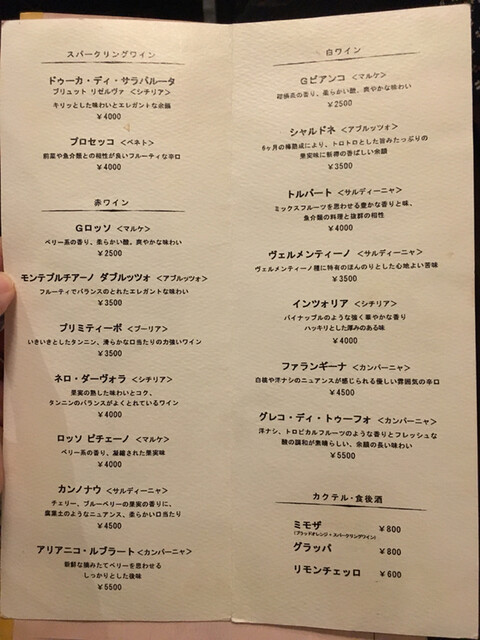 スパークリングワイン
ドゥーカ・ディ・サラパルータ
ブリュット リゼルヴァ <シチリア>
キリッとした味わいとエレガントな余韻
¥4000
プロセッコ <ベネト>
前菜や魚介類との相性が良いフルーティな辛口
¥4000
赤ワイン
Gロッソ <マルケ>
ベリー系の香り、柔らかい酸、爽やかな味わい
¥2500
モンテプルチアーノ ダブルッツォ <アブルッツォ>
フルーティでバランスのとれたエレガントな味わい
¥3500
プリミティーボ <プーリア>
いきいきとしたタンニン、滑らかな口当たりの力強いワイン
¥3500
ネロ・ダーヴォラ <シチリア>
果実の熟した味わいとコク、
タンニンのバランスがよくとれているワイン
¥4000
ロッソ ピチェーノ <マルケ>
ベリー系の香り、凝縮された果実味
¥4000
カンノナウ <サルディーニャ>
チェリー、ブルーベリーの果実の香りに、
腐葉土のようなニュアンス、柔らかい口当たり
¥4500
アリアニコ・ルブラート <カンパーニャ>
新鮮な摘みたてベリーを思わせる
しっかりとした後味
¥5500
白ワイン
Gビアンコ <マルケ>
柑橘系の香り、柔らかい酸、爽やかな味わい
¥2500
シャルドネ <アブルッツォ>
6ヶ月の樽熟成により、トロトロとした旨みたっぷりの
果実味に特有の香ばしい余韻
¥3500
トルバート <サルディーニャ>
ミックスフルーツを思わせる豊かな香りと味、
魚介類の料理と抜群の相性
¥4000
ヴェルメンティーノ <サルディーニャ>
ヴェルメンティーノ種に特有のほんのりとした心地よい苦味
¥3500
インツォリア <シチリア>
パイナップルのような強く華やかな香り
ハッキリとした厚みのある味
¥4000
ファランギーナ <カンパーニャ>
白桃や洋ナシのニュアンスが感じられる優しい雰囲気の辛口
¥4500
グレコ・ディ・トゥーフォ <カンパーニャ>
洋ナシ、トロピカルフルーツのような香りとフレッシュな
酸の調和が素晴らしい、余韻の長い味わい
¥5500
カクテル・食後酒
ミモザ ¥800
(ブラッドオレンジ+スパークリングワイン)
グラッパ ¥800
リモンチェッロ ¥600